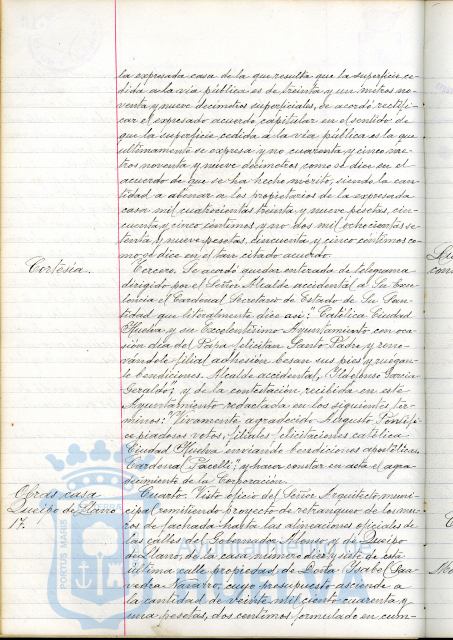 la expresada casa de la que resulta que la superficie ce-
dida a la via pública es de treinta y un metros no-
venta y nueve decimetros superficiales, se acordó rectifi-
car el expresado acuerdo capitular en el sentido de
que la superficie cedida a la via pública es la que
ultimamente se expresa y no cuarenta y cinco me-
tros noventa y nueve decimetros, como se dice en el
acuerdo de que se ha hecho mérito, siendo la can-
tidad a abonar a los propietarios de la expresada
casa mil cuatrocientas treinta y nueve pesetas, cin-
cuenta y cinco céntimos, y no dos mil ochocientas se-
tenta y nueve pesetas, cincuenta y cinco céntimos co-
mo se dice en el tan citado acuerdo.
Cortesia.
Tercero. Se acordó quedar enterada de telegrama
dirigido por el Señor Alcalde accidental a Su Exce-
lencia el Cardenal Secretario de Estado de Su San-
tidad que literalmente dice asi: "Católica Ciudad
Huelva y su Excelentísimo Ayuntamiento con oca-
sión dia del Papa felicitan Santo Padre y reno-
vándole filial adhesión besan sus pies y ruegan-
le bendiciones. Alcalde accidental, Ildefonso Garcia
Geraldo"; y de la contestación, recibida en este
Ayuntamiento redactada en los siguientes ter-
minos: "Vivamente agradecido Augusto Pontifi-
ce piadosos votos, filiales felicitaciones católica
Ciudad Huelva enviando bendiciones apostólicas.
Cardenal Pacelli"; y hacer constar en acta el agra-
decimiento de la Corporación.
Obras casa
Queipo de Llano
17.
Cuarto. Visto oficio del Señor Arquitecto muni-
cipal remitiendo proyecto de retranqueo de los mu-
ros de fachada hasta las alineaciones oficiales de
las calles del Gobernador Alonso y de Queipo
de Llano, de la casa número diez y siete de esta
última calle propiedad de Doña Isabel Saa-
vedra Navarro, cuyo presupuesto asciende a
la cantidad de veinte mil ciento cuarenta y
una pesetas, dos centimos formulado en cum-
PORTUS MARIS